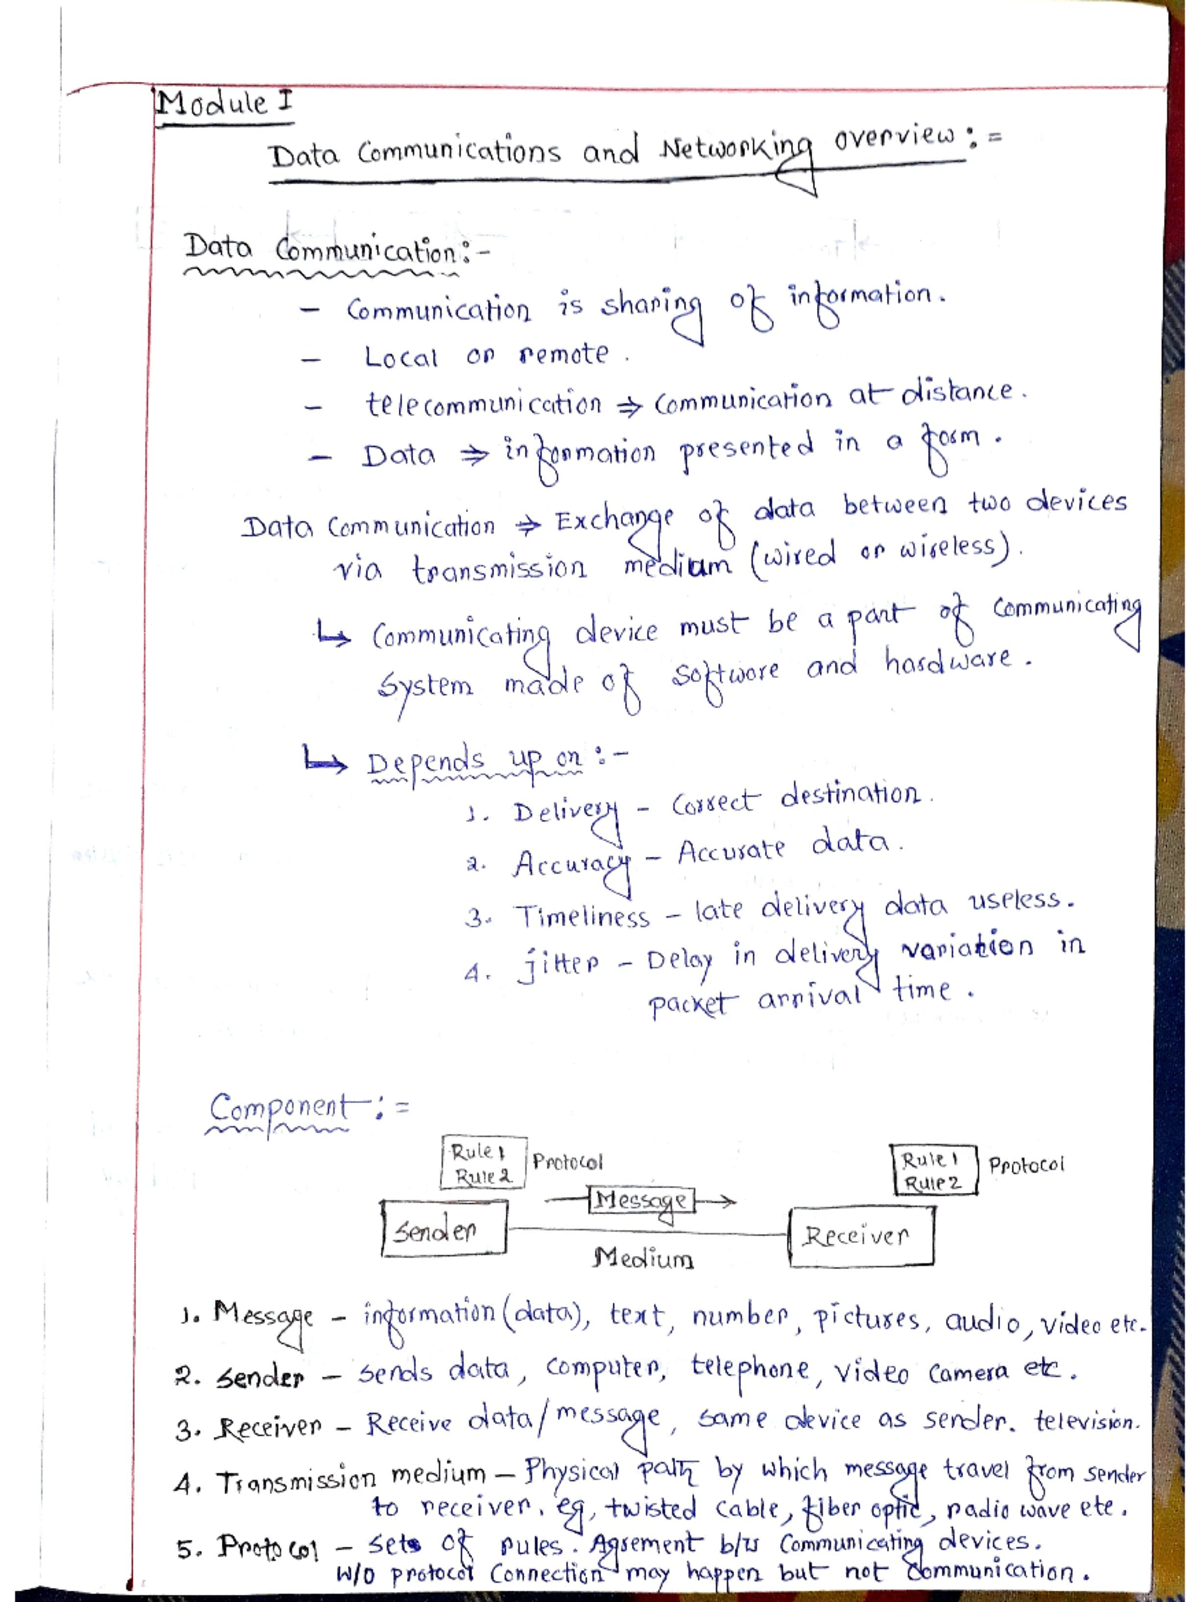 Module I
Data Communications and Networking overview :=
Data Communication :-
- Communication is sharing of information.
- Local or remote.
- telecommunication ⇒ Communication at distance.
- Data ⇒ information presented in a form.
Data Communication ⇒ Exchange of data between two devices
via transmission medium (wired or wireless).
↳ Communicating device must be a part of Communicating
System made of Software and hardware.
↳ Depends up on :-
1. Delivery - Correct destination.
2. Accuracy - Accurate data.
3. Timeliness - late delivery data useless.
4. jitter - Delay in delivery variation in
packet arrival time.
Component :=
Rule 1
Rule 2
Protocol
Rule 1
Rule 2
Protocol
Message
Sender
Receiver
Medium
1. Message - information (data), text, number, pictures, audio, video etc.
2. Sender - Sends data, computer, telephone, video camera etc.
3. Receiver - Receive data/message, same device as sender. television.
4. Transmission medium - Physical path by which message travel from sender
to receiver. eg, twisted cable, fiber optic, radio wave etc.
5. Protocol - sets of rules. Agrement b/w Communicating devices.
W/O protocol Connection may happen but not Communication.